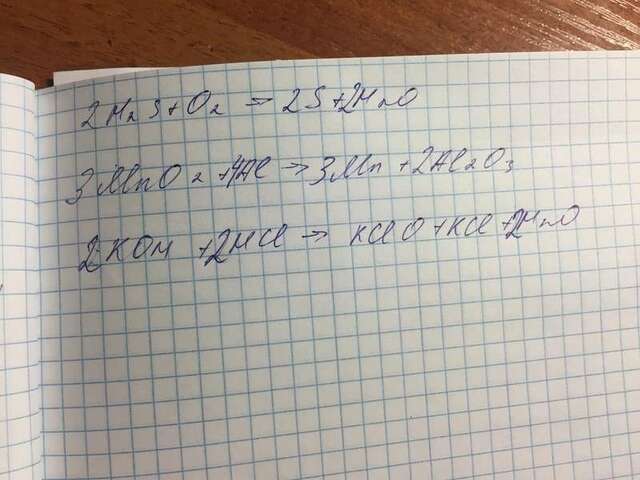 2H₂S+O₂ → 2S+2H₂O
3MnO₂+4Al → 3Mn+2Al₂O₃
2KOH+2HCl → KClO+KCl+2H₂O